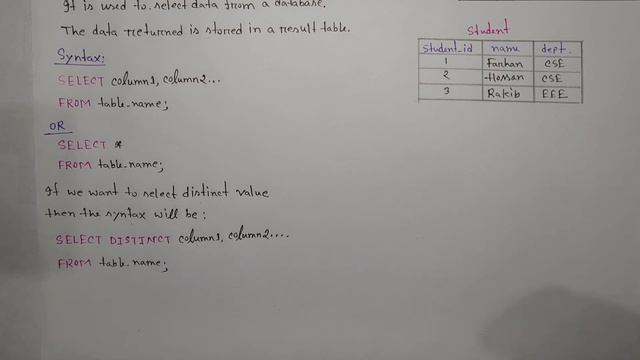 It is used to select data from a database.
The data returned is storred in a result table.
Syntax:
SELECT column1, column2...
FROM table_name;
OR
SELECT *
FROM table_name;
If we want to select distinct value
then the syntax will be:
SELECT DISTINCT column1, column2....
FROM table_name;
Student
student_id name dept.
1 Farhan CSE
2 Hossan CSE
3 Rakib EEE